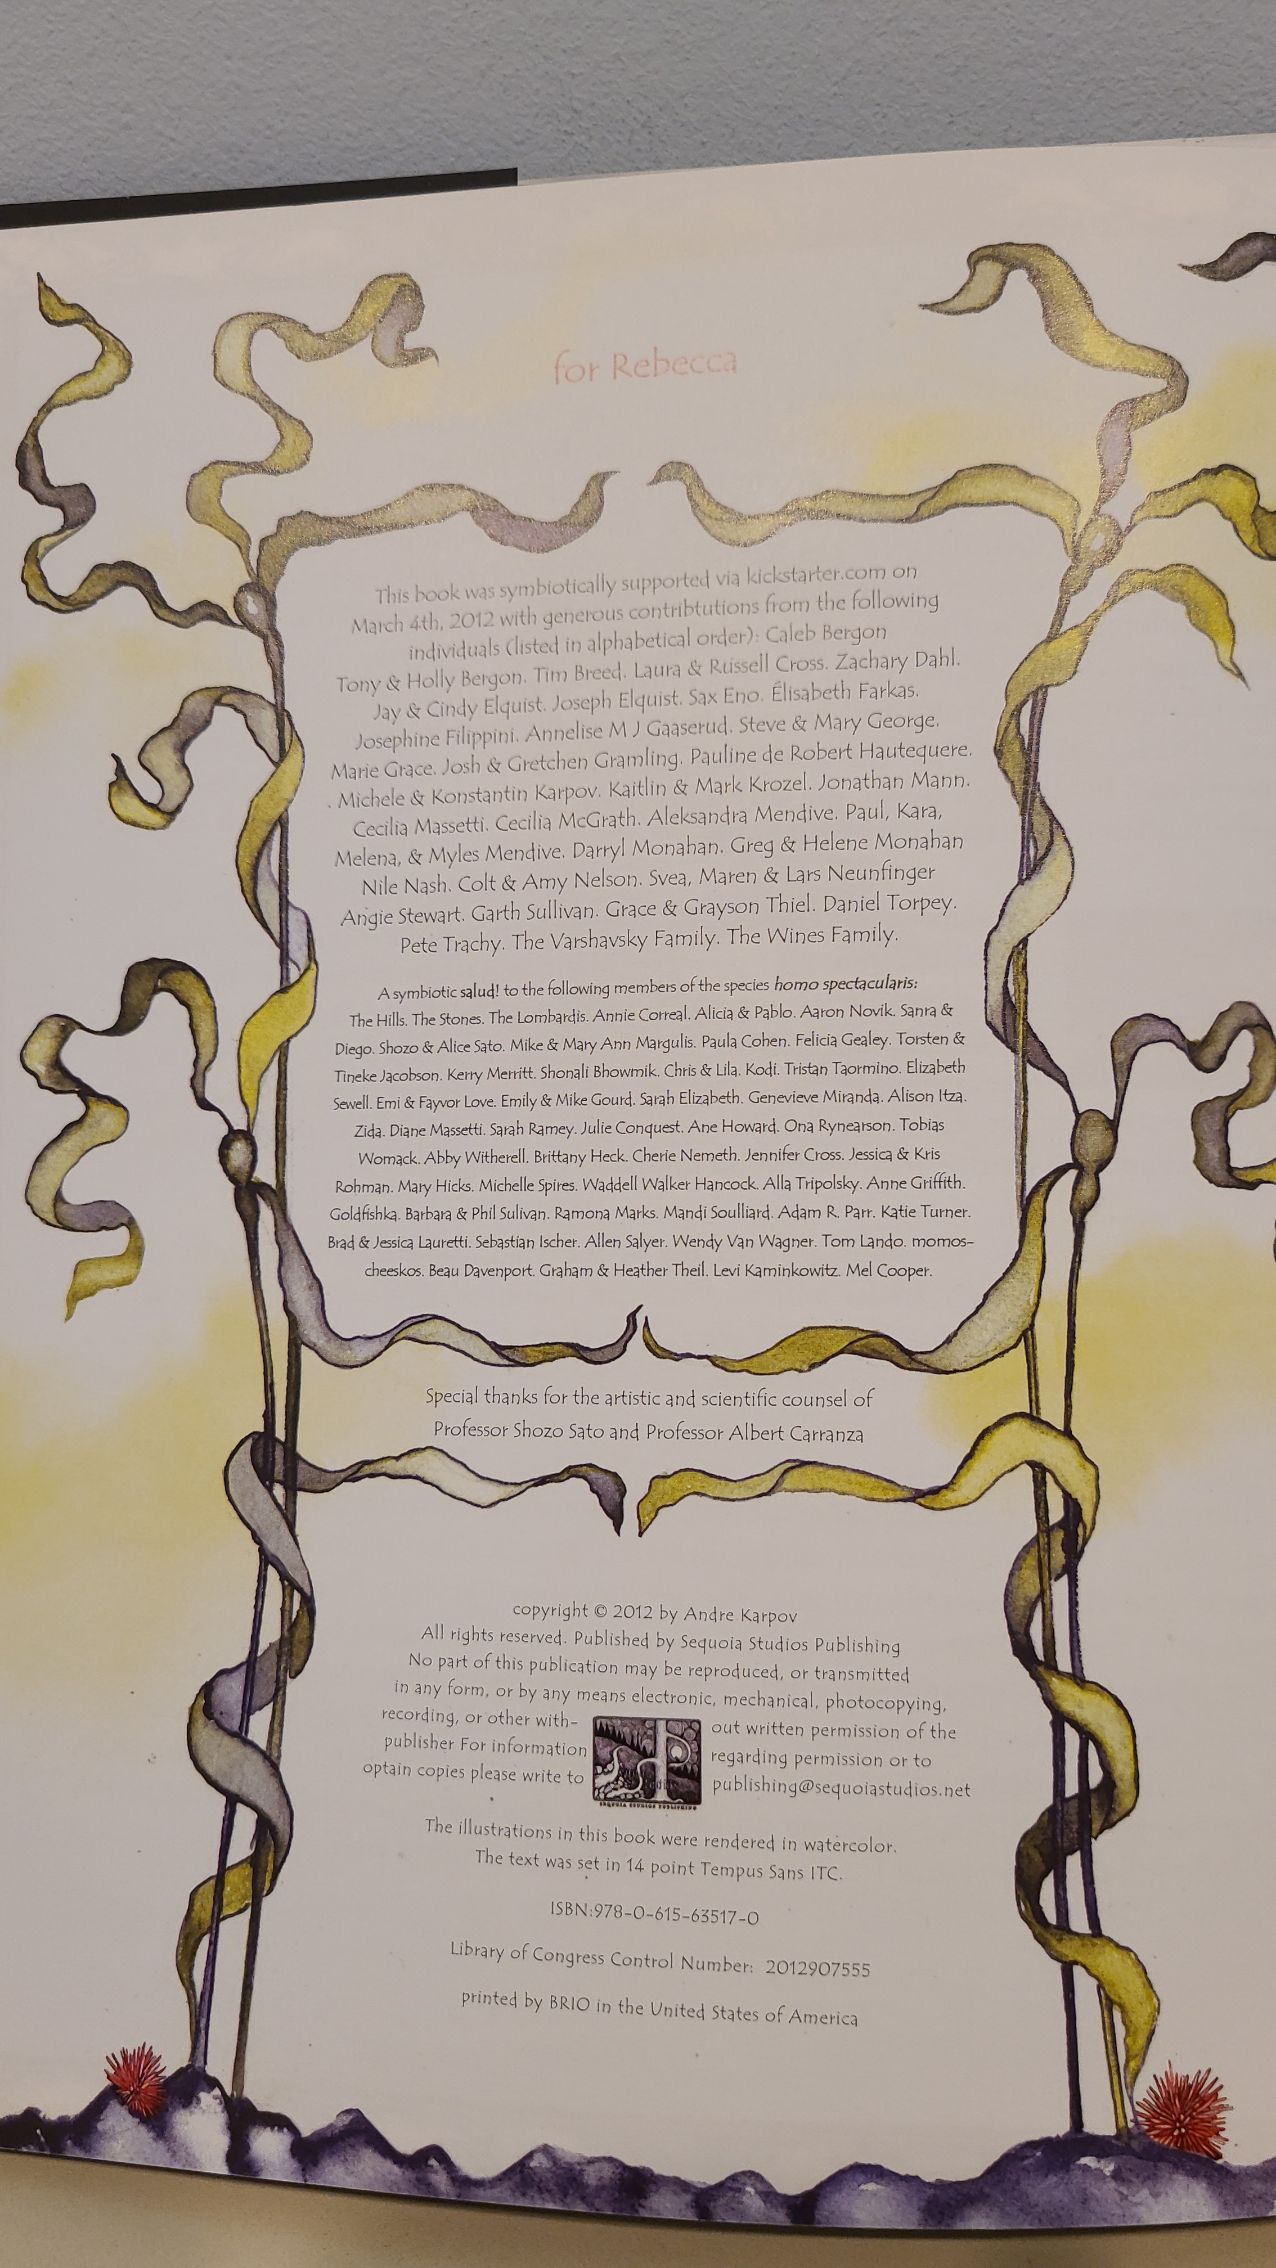 for Rebecca
This book was symbiotically supported via kickstarter.com on
March 4th, 2012 with generous contribtutions from the following
individuals (listed in alphabetical order): Caleb Bergon
Tony & Holly Bergon. Tim Breed. Laura & Russell Cross. Zachary Dahl.
Jay & Cindy Elquist. Joseph Elquist. Sax Eno. Élisabeth Farkas.
Josephine Filippini. Annelise M J Gaaserud. Steve & Mary George.
Marie Grace. Josh & Gretchen Gramling. Pauline de Robert Hautequere.
. Michele & Konstantin Karpov. Kaitlin & Mark Krozel. Jonathan Mann.
Cecilia Massetti. Cecilia McGrath. Aleksandra Mendive. Paul, Kara,
Melena, & Myles Mendive. Darryl Monahan. Greg & Helene Monahan
Nile Nash. Colt & Amy Nelson. Svea, Maren & Lars Neunfinger
Angie Stewart. Garth Sullivan. Grace & Grayson Thiel. Daniel Torpey.
Pete Trachy. The Varshavsky Family. The Wines Family.
A symbiotic salud! to the following members of the species homo spectacularis:
The Hills. The Stones. The Lombardis. Annie Correal. Alicia & Pablo. Aaron Novik. Sanra &
Diego. Shozo & Alice Sato. Mike & Mary Ann Margulis. Paula Cohen. Felicia Gealey. Torsten &
Tineke Jacobson. Kerry Merritt. Shonali Bhowmik. Chris & Lila. Kodi. Tristan Taormino. Elizabeth
Sewell. Emi & Fayvor Love. Emily & Mike Gourd. Sarah Elizabeth. Genevieve Miranda. Alison Itza.
Zida. Diane Massetti. Sarah Ramey. Julie Conquest. Ane Howard. Ona Rynearson. Tobias
Womack. Abby Witherell. Brittany Heck. Cherie Nemeth. Jennifer Cross. Jessica & Kris
Rohman. Mary Hicks. Michelle Spires. Waddell Walker Hancock. Alla Tripolsky. Anne Griffith.
Goldfishka. Barbara & Phil Sulivan. Ramona Marks. Mandi Soulliard. Adam R. Parr. Katie Turner.
Brad & Jessica Lauretti. Sebastian Ischer. Allen Salyer. Wendy Van Wagner. Tom Lando. momos-
cheeskos. Beau Davenport. Graham & Heather Theil. Levi Kaminkowitz. Mel Cooper.
Special thanks for the artistic and scientific counsel of
Professor Shozo Sato and Professor Albert Carranza
copyright © 2012 by Andre Karpov
All rights reserved. Published by Sequoia Studios Publishing
No part of this publication may be reproduced, or transmitted
in any form, or by any means electronic, mechanical, photocopying,
recording, or other with- out written permission of the
publisher For information regarding permission or to
optain copies please write to publishing@sequoiastudios.net
SEQUOIA STUDIOS PUBLISHING
The illustrations in this book were rendered in watercolor.
The text was set in 14 point Tempus Sans ITC.
ISBN:978-0-615-63517-0
Library of Congress Control Number: 2012907555
printed by BRIO in the United States of America